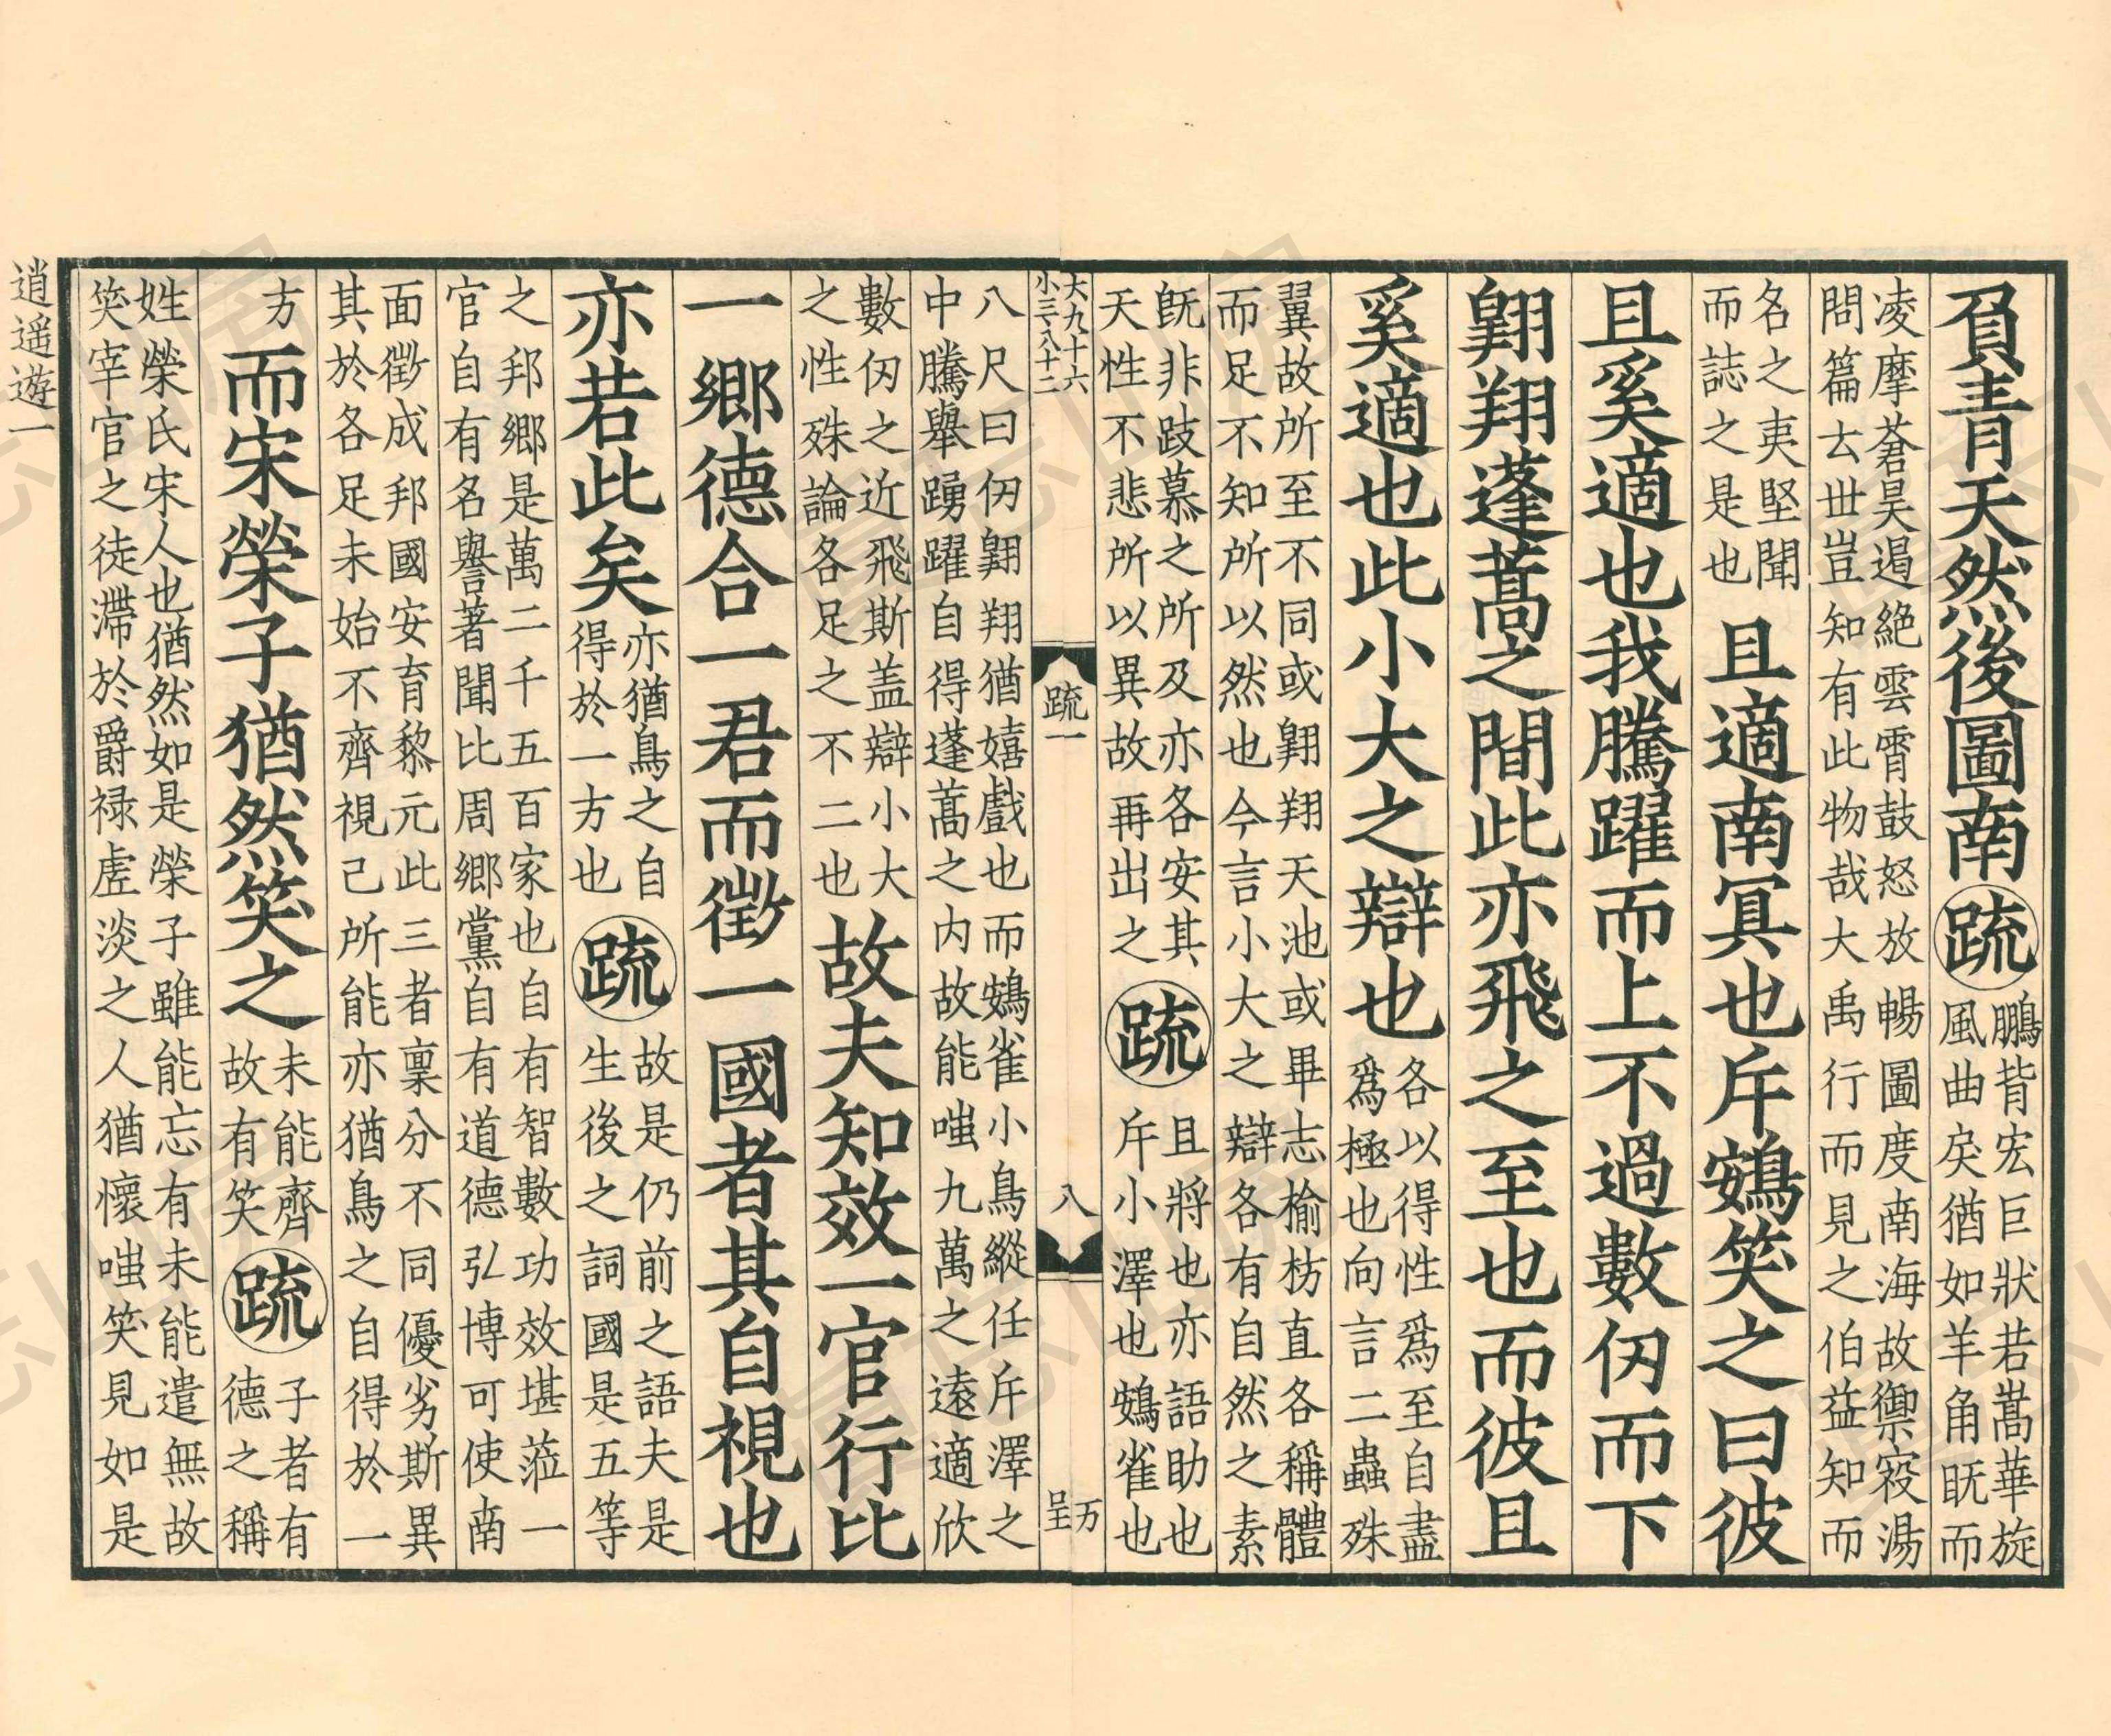 負青天然後圖南疏鵬背宏巨狀若嵩華旋風曲戾猶如羊角旣而
凌摩蒼昊遏絶雲霄鼓怒放暢圖度南海故禦寇湯問篇云世豈知有此物哉大禹行而見之伯益知而
名之夷堅聞而誌之是也且適南冥也斥鴳笑之曰彼
且奚適也我騰躍而上不過數仞而下
翱翔蓬蒿之間此亦飛之至也而彼且
奚適也此小大之辯也各以得性爲至自盡爲極也向言二蟲殊
翼故所至不同或翱翔天池或畢志榆枋直各稱體而足不知所以然也今言小大之辯各有自然之素
旣非跂慕之所及亦各安其天性不悲所以異故再出之疏且將也亦語助也斥小澤也鴳雀也
大九十六
小三八十二
疏一
八
万呈
八尺曰仞翱翔猶嬉戲也而鴳雀小鳥縱任斥澤之中騰舉踴躍自得蓬蒿之内故能嗤九萬之遠適欣
數仞之近飛斯盖辯小大之性殊論各足之不二也故夫知效一官行比
一鄉德合一君而徵一國者其自視也
亦若此矣亦猶鳥之自得於一方也疏故是仍前之語夫是生後之詞國是五等
之邦鄉是萬二千五百家也自有智數功效堪蒞一官自有名譽著聞比周鄉黨自有道德弘博可使南
面徵成邦國安育黎元此三者稟分不同優劣斯異其於各足未始不齊視己所能亦猶鳥之自得於一
方而宋榮子猶然笑之未能齊故有笑疏子者有德之稱
姓榮氏宋人也猶然如是榮子雖能忘有未能遣無故笑宰官之徒滯於爵禄虛淡之人猶懷嗤笑見如是
逍遥遊一